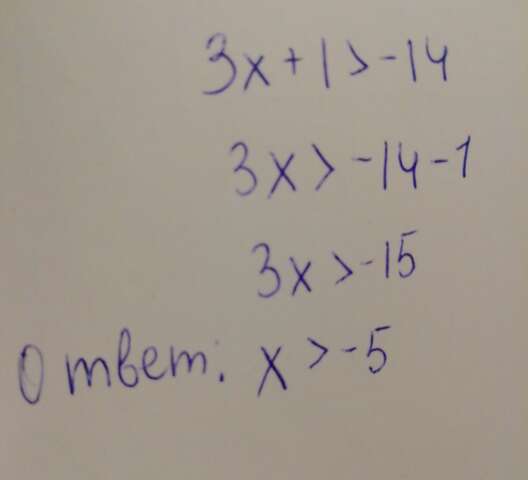 3x + 1 > -14
3x > -14 - 1
3x > -15
Ответ: x > -5